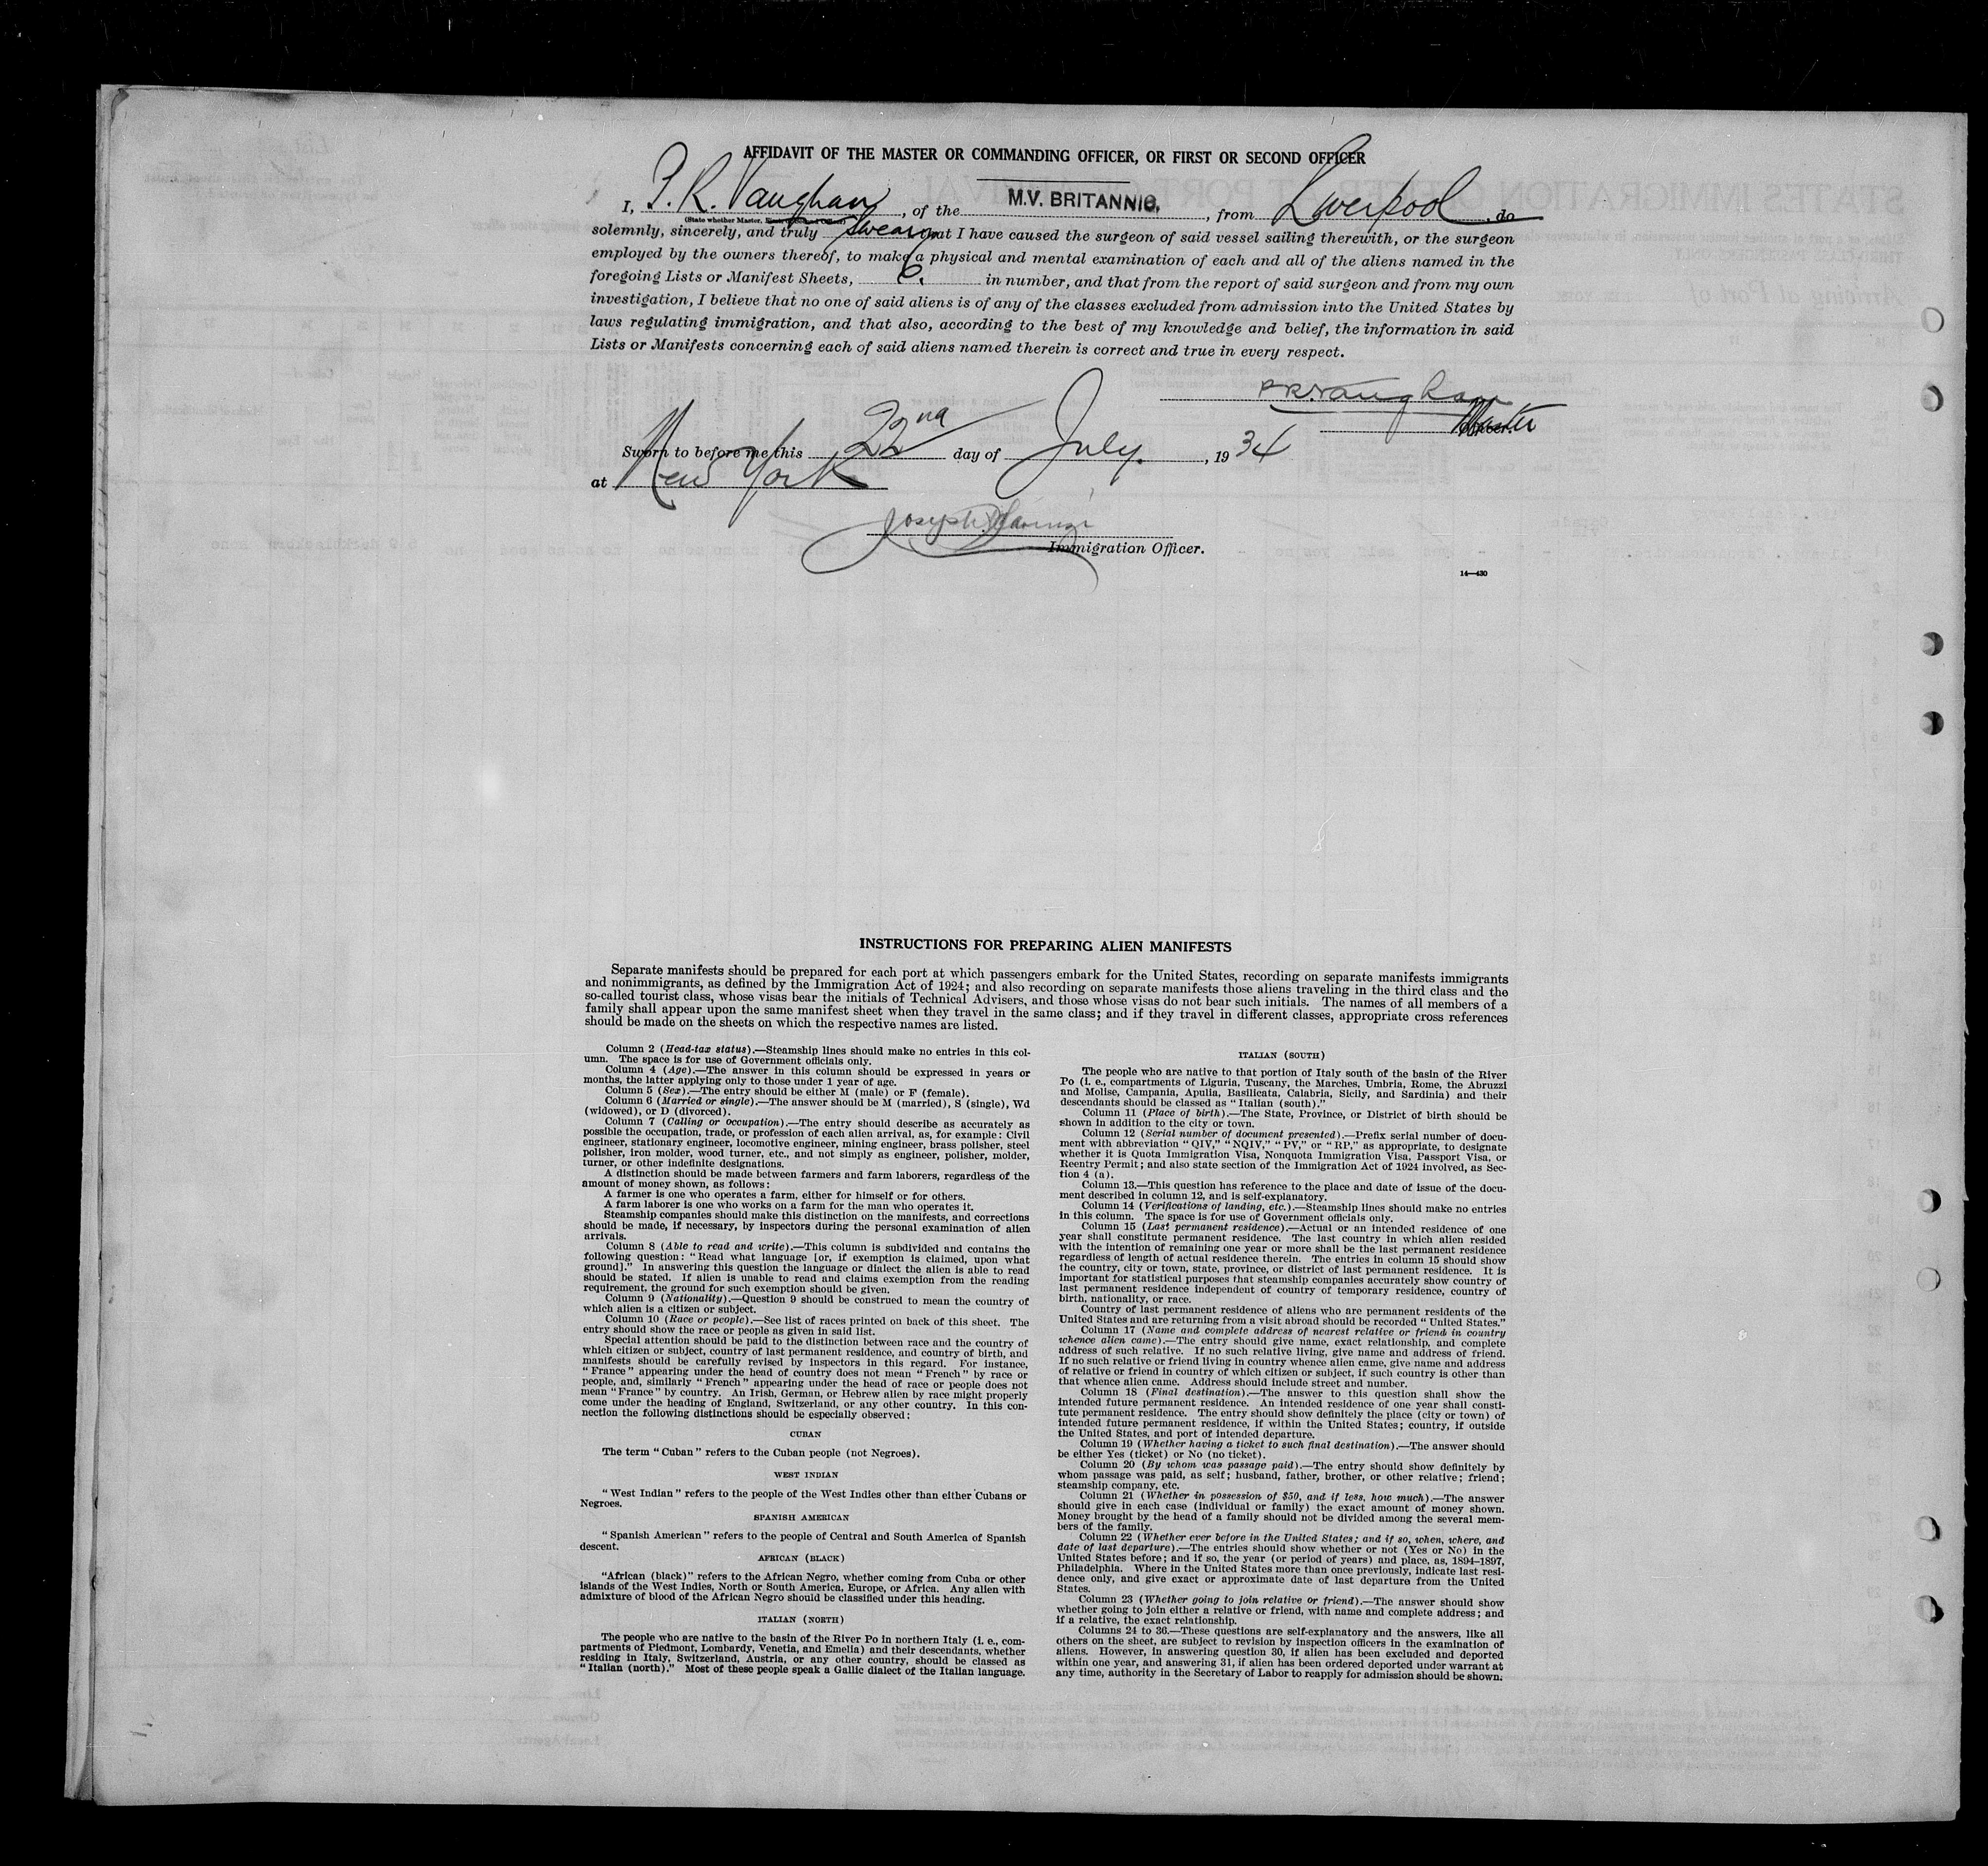 AFFIDAVIT OF THE MASTER OR COMMANDING OFFICER, OR FIRST OR SECOND OFFICER
I, P. R. Vaughan, of the M.V. BRITANNIC, from Liverpool, do
(State whether Master,
solemnly, sincerely, and truly swear that I have caused the surgeon of said vessel sailing therewith, or the surgeon
employed by the owners thereof, to make a physical and mental examination of each and all of the aliens named in the
foregoing Lists or Manifest Sheets, in number, and that from the report of said surgeon and from my own
investigation, I believe that no one of said aliens is of any of the classes excluded from admission into the United States by
laws regulating immigration, and that also, according to the best of my knowledge and belief, the information in said
Lists or Manifests concerning each of said aliens named therein is correct and true in every respect.
P R Vaughan
Master
Officer.
Sworn to before me this 22nd day of July, 1934
at New York
Joseph
Immigration Officer.
14—430
INSTRUCTIONS FOR PREPARING ALIEN MANIFESTS
Separate manifests should be prepared for each port at which passengers embark for the United States, recording on separate manifests immigrants
and nonimmigrants, as defined by the Immigration Act of 1924; and also recording on separate manifests those aliens traveling in the third class and the
so-called tourist class, whose visas bear the initials of Technical Advisers, and those whose visas do not bear such initials. The names of all members of a
family shall appear upon the same manifest sheet when they travel in the same class; and if they travel in different classes, appropriate cross references
should be made on the sheets on which the respective names are listed.
Column 2 (Head-tax status).—Steamship lines should make no entries in this col-
umn. The space is for use of Government officials only.
Column 4 (Age).—The answer in this column should be expressed in years or
months, the latter applying only to those under 1 year of age.
Column 5 (Sex).—The entry should be either M (male) or F (female).
Column 6 (Married or single).—The answer should be M (married), S (single), Wd
(widowed), or D (divorced).
Column 7 (Calling or occupation).—The entry should describe as accurately as
possible the occupation, trade, or profession of each alien arrival, as, for example: Civil
engineer, stationary engineer, locomotive engineer, mining engineer, brass polisher, steel
polisher, iron molder, wood turner, etc., and not simply as engineer, polisher, molder,
turner, or other indefinite designations.
A distinction should be made between farmers and farm laborers, regardless of the
amount of money shown, as follows:
A farmer is one who operates a farm, either for himself or for others.
A farm laborer is one who works on a farm for the man who operates it.
Steamship companies should make this distinction on the manifests, and corrections
should be made, if necessary, by inspectors during the personal examination of alien
arrivals.
Column 8 (Able to read and write).—This column is subdivided and contains the
following question: “Read what language [or, if exemption is claimed, upon what
ground].” In answering this question the language or dialect the alien is able to read
should be stated. If alien is unable to read and claims exemption from the reading
requirement, the ground for such exemption should be given.
Column 9 (Nationality).—Question 9 should be construed to mean the country of
which alien is a citizen or subject.
Column 10 (Race or people).—See list of races printed on back of this sheet. The
entry should show the race or people as given in said list.
Special attention should be paid to the distinction between race and the country of
which citizen or subject, country of last permanent residence, and country of birth, and
manifests should be carefully revised by inspectors in this regard. For instance,
“France” appearing under the head of country does not mean “French” by race or
people, and, similarly “French” appearing under the head of race or people does not
mean “France” by country. An Irish, German, or Hebrew alien by race might properly
come under the heading of England, Switzerland, or any other country. In this con-
nection the following distinctions should be especially observed:
CUBAN
The term “Cuban” refers to the Cuban people (not Negroes).
WEST INDIAN
“West Indian” refers to the people of the West Indies other than either Cubans or
Negroes.
SPANISH AMERICAN
“Spanish American” refers to the people of Central and South America of Spanish
descent.
AFRICAN (BLACK)
“African (black)” refers to the African Negro, whether coming from Cuba or other
islands of the West Indies, North or South America, Europe, or Africa. Any alien with
admixture of blood of the African Negro should be classified under this heading.
ITALIAN (NORTH)
The people who are native to the basin of the River Po in northern Italy (i. e., com-
partments of Piedmont, Lombardy, Venetia, and Emelia) and their descendants, whether
residing in Italy, Switzerland, Austria, or any other country, should be classed as
“Italian (north).” Most of these people speak a Gallic dialect of the Italian language.
ITALIAN (SOUTH)
The people who are native to that portion of Italy south of the basin of the River
Po (i. e., compartments of Liguria, Tuscany, the Marches, Umbria, Rome, the Abruzzi
and Molise, Campania, Apulia, Basilicata, Calabria, Sicily, and Sardinia) and their
descendants should be classed as “Italian (south).”
Column 11 (Place of birth).—The State, Province, or District of birth should be
shown in addition to the city or town.
Column 12 (Serial number of document presented).—Prefix serial number of docu-
ment with abbreviation “QIV,” “NQIV,” “PV,” or “RP,” as appropriate, to designate
whether it is Quota Immigration Visa, Nonquota Immigration Visa, Passport Visa, or
Reentry Permit; and also state section of the Immigration Act of 1924 involved, as Sec-
tion 4 (a).
Column 13.—This question has reference to the place and date of issue of the docu-
ment described in column 12, and is self-explanatory.
Column 14 (Verifications of landing, etc.).—Steamship lines should make no entries
in this column. The space is for use of Government officials only.
Column 15 (Last permanent residence).—Actual or an intended residence of one
year shall constitute permanent residence. The last country in which alien resided
with the intention of remaining one year or more shall be the last permanent residence
regardless of length of actual residence therein. The entries in column 15 should show
the country, city or town, state, province, or district of last permanent residence. It is
important for statistical purposes that steamship companies accurately show country of
last permanent residence independent of country of temporary residence, country of
birth, nationality, or race.
Country of last permanent residence of aliens who are permanent residents of the
United States and are returning from a visit abroad should be recorded “United States.”
Column 17 (Name and complete address of nearest relative or friend in country
whence alien came).—The entry should give name, exact relationship, and complete
address of such relative. If no such relative living, give name and address of friend.
If no such relative or friend living in country whence alien came, give name and address
of relative or friend in country of which citizen or subject, if such country is other than
that whence alien came. Address should include street and number.
Column 18 (Final destination).—The answer to this question shall show the
intended future permanent residence. An intended residence of one year shall consti-
tute permanent residence. The entry should show definitely the place (city or town) of
intended future permanent residence, if within the United States; country, if outside
the United States, and port of intended departure.
Column 19 (Whether having a ticket to such final destination).—The answer should
be either Yes (ticket) or No (no ticket).
Column 20 (By whom was passage paid).—The entry should show definitely by
whom passage was paid, as self; husband, father, brother, or other relative; friend;
steamship company, etc.
Column 21 (Whether in possession of $50, and if less, how much).—The answer
should give in each case (individual or family) the exact amount of money shown.
Money brought by the head of a family should not be divided among the several mem-
bers of the family.
Column 22 (Whether ever before in the United States; and if so, when, where, and
date of last departure).—The entries should show whether or not (Yes or No) in the
United States before; and if so, the year (or period of years) and place, as, 1894–1897,
Philadelphia. Where in the United States more than once previously, indicate last resi-
dence only, and give exact or approximate date of last departure from the United
States.
Column 23 (Whether going to join relative or friend).—The answer should show
whether going to join either a relative or friend, with name and complete address; and
if a relative, the exact relationship.
Columns 24 to 36.—These questions are self-explanatory and the answers, like all
others on the sheet, are subject to revision by inspection officers in the examination of
aliens. However, in answering question 30, if alien has been excluded and deported
within one year, and answering 31, if alien has been ordered deported under warrant at
any time, authority in the Secretary of Labor to reapply for admission should be shown.